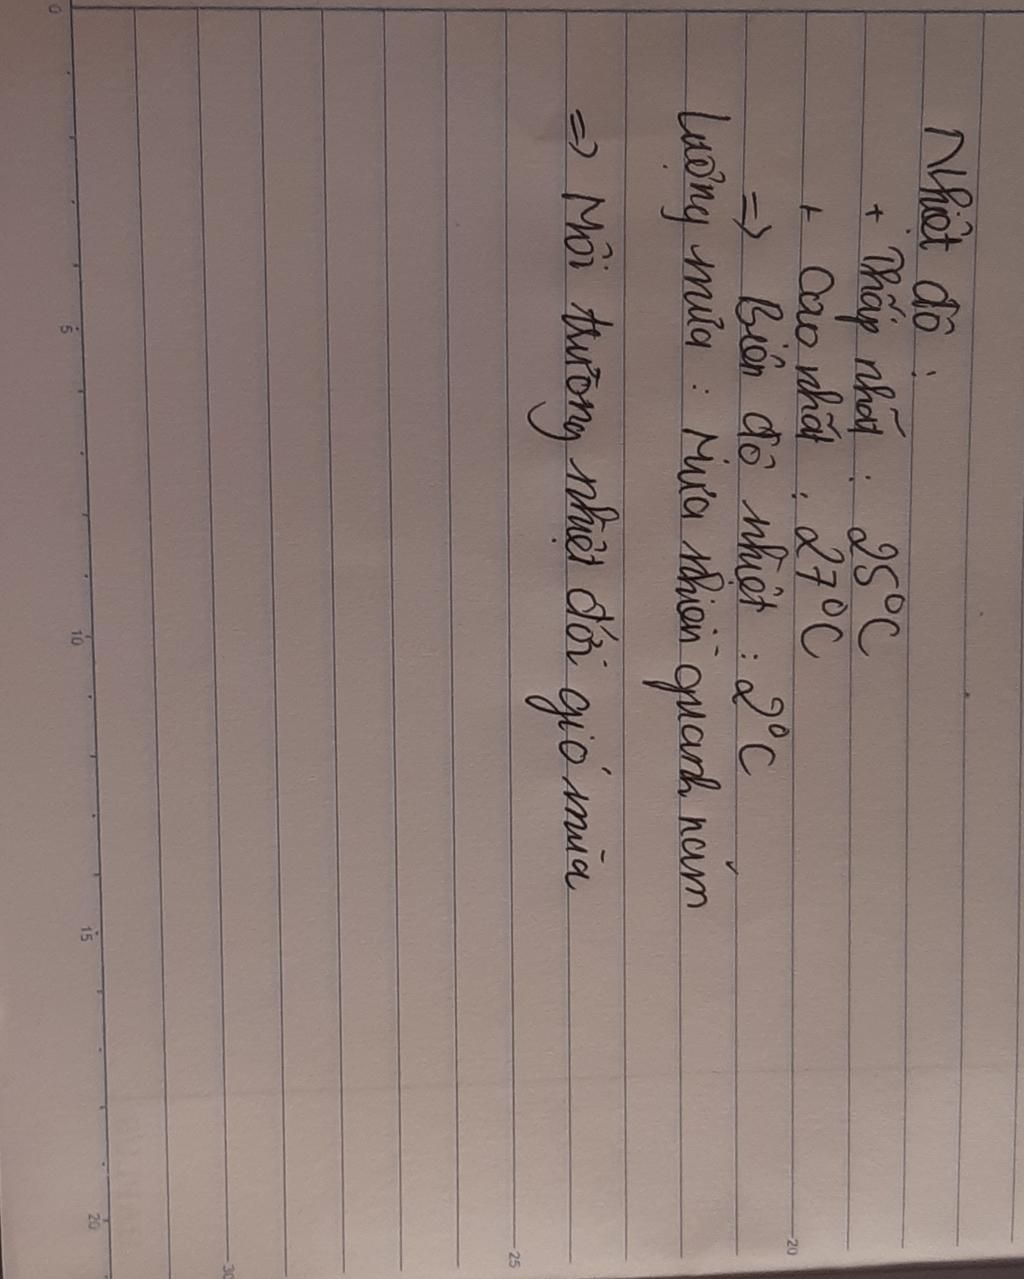 Nhiệt độ :
+ Thấp nhất : 25°C
+ Cao nhất : 27°C
=> Biên độ nhiệt : 2°C
Lượng mưa : Mưa nhiều quanh năm
=> Môi trường nhiệt đới gió mùa
0
5
10
15
20
20
25
30